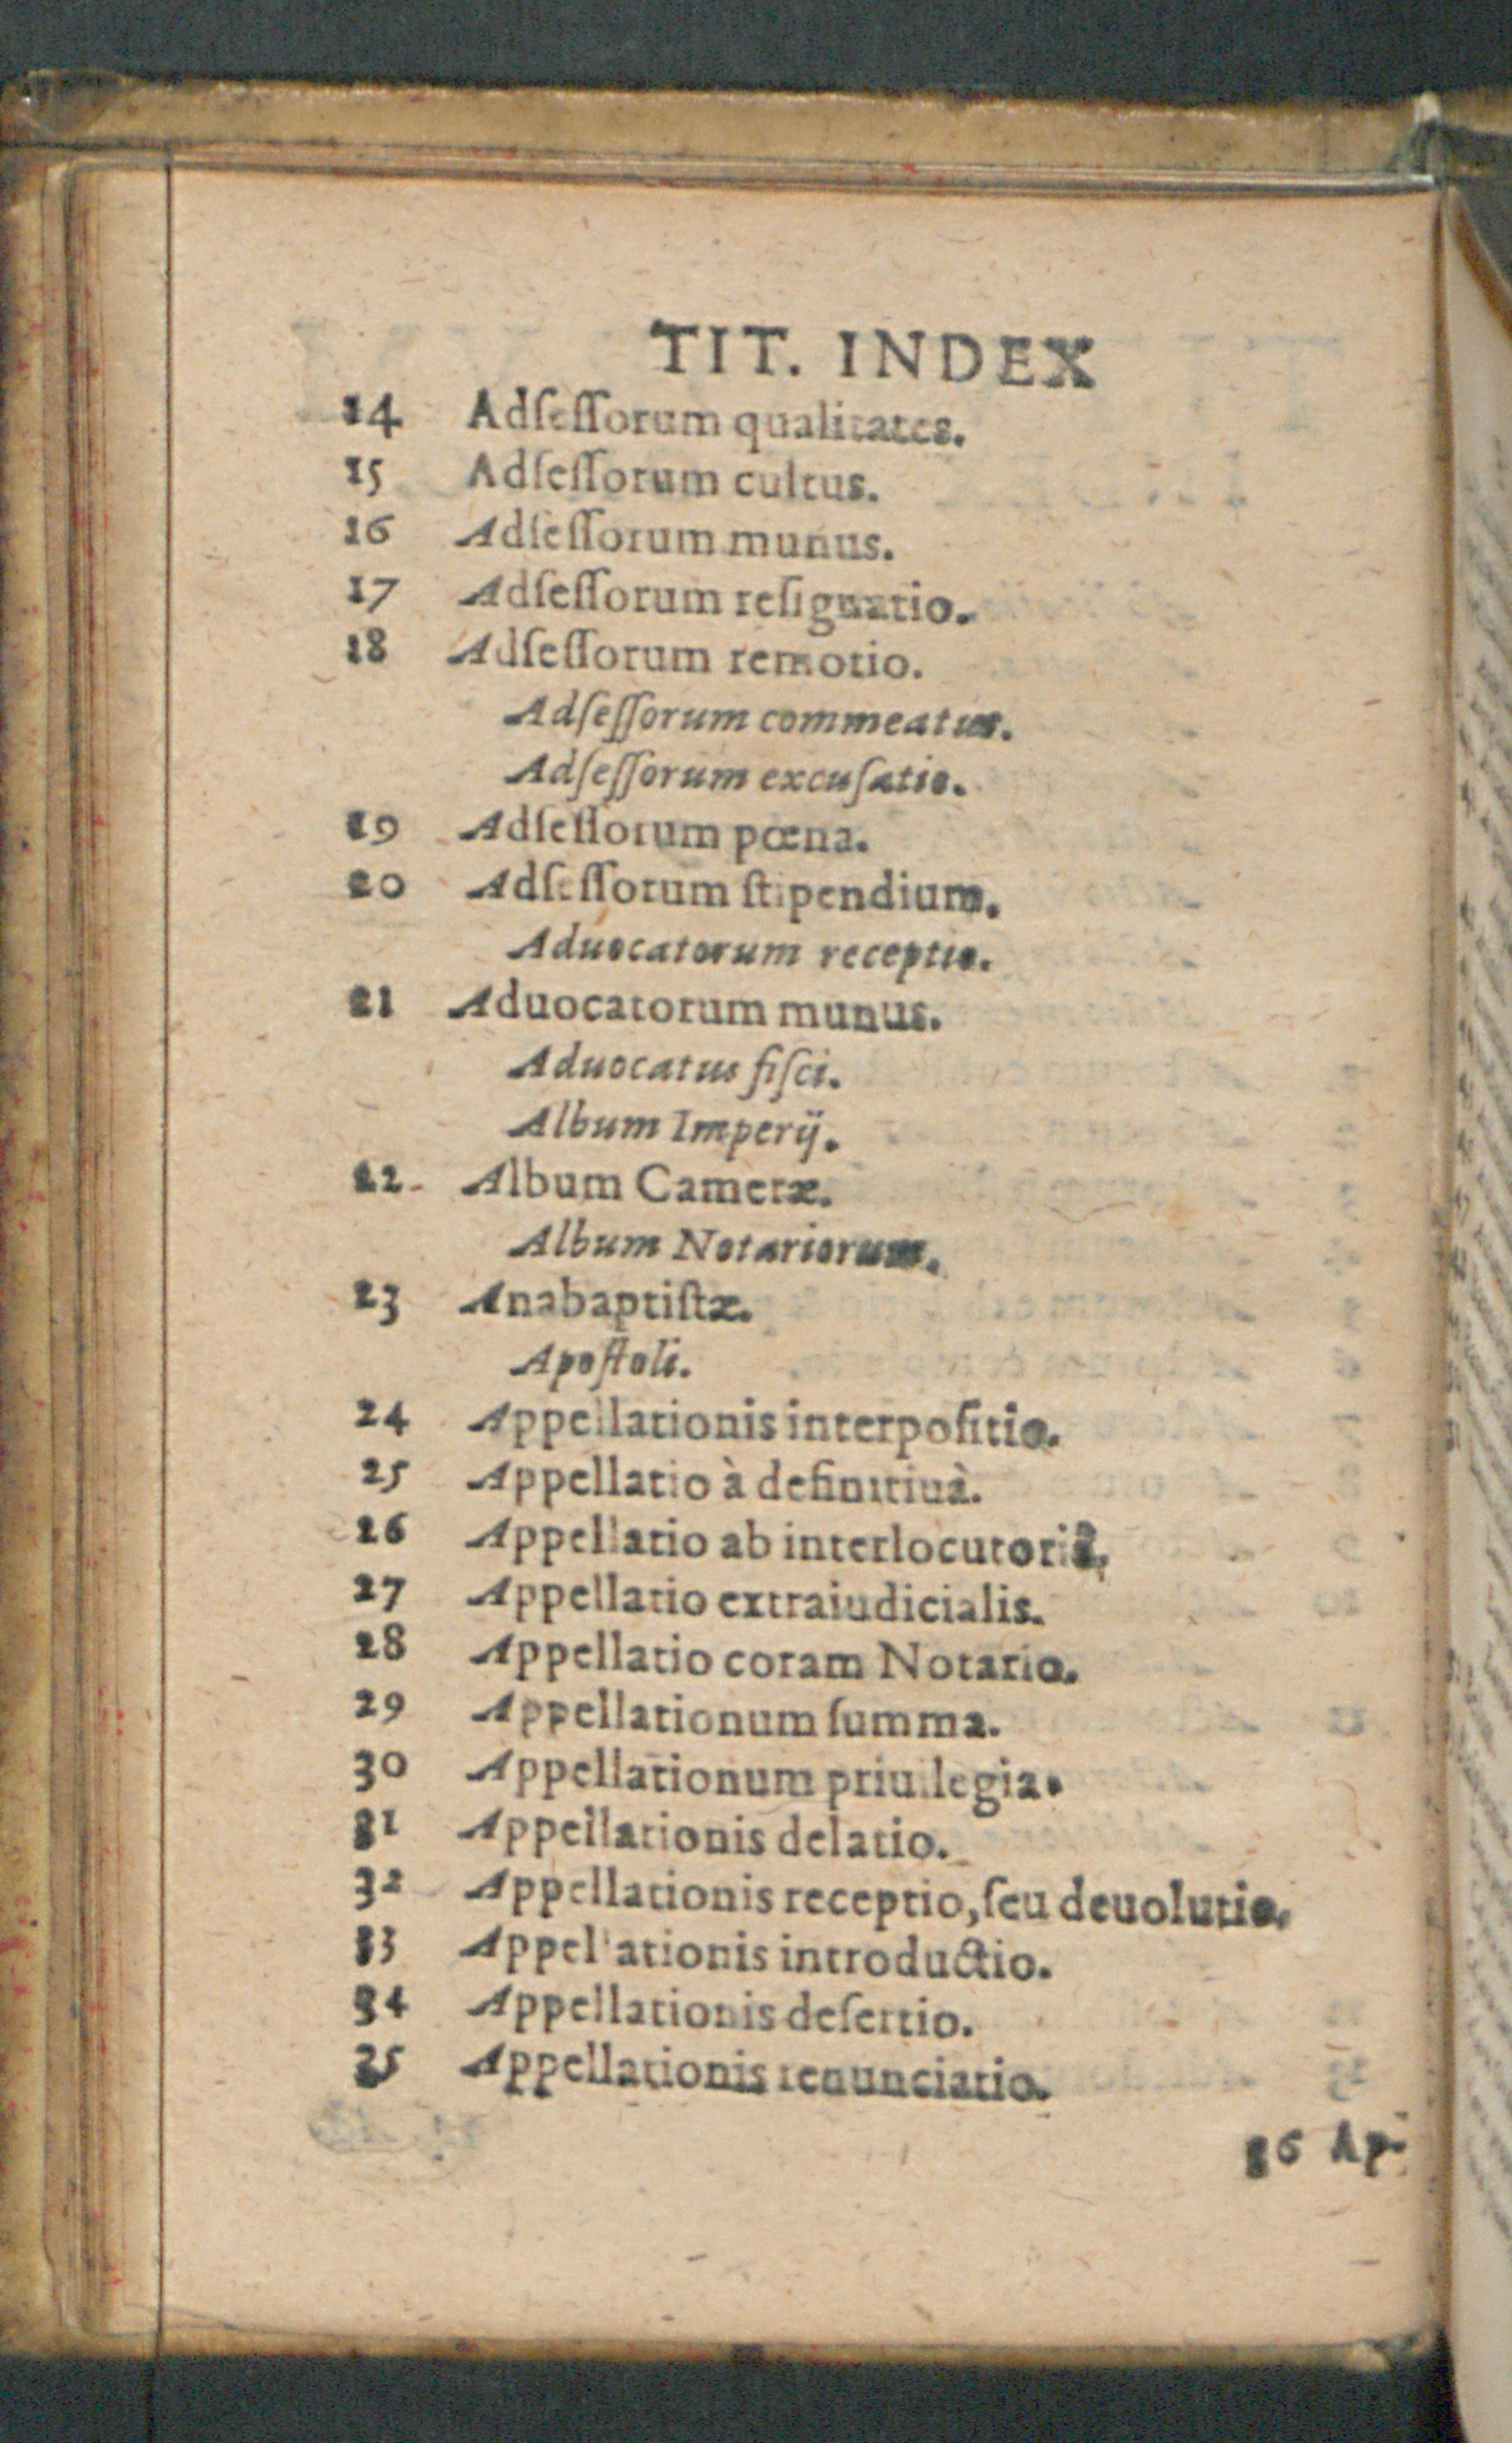 TIT. INDEX
14 Adſeſſorum qualitates.
15 Adſeſſorum cultus.
16 Adſeſſorum munus.
17 Adſeſſorum reſignatio.
18 Adſeſſorum remotio.
Adſeſſorum commeatus.
Adſeſſorum excuſatio.
19 Adſeſſorum pœna.
20 Adſeſſorum ſtipendium.
Aduocatorum receptio.
21 Aduocatorum munus.
Aduocatus fiſci.
Album Imperij.
22 Album Cameræ.
Album Notariorum.
23 Anabaptiſtæ.
Apoſtoli.
24 Appellationis interpoſitio.
25 Appellatio à definitiuà.
26 Appellatio ab interlocutoriâ.
27 Appellatio extraiudicialis.
28 Appellatio coram Notario.
29 Appellationum ſumma.
30 Appellationum priuilegia.
31 Appellationis delatio.
32 Appellationis receptio, ſeu deuolutio.
33 Appellationis introductio.
34 Appellationis deſertio.
35 Appellationis renunciatio.
36 Ap-